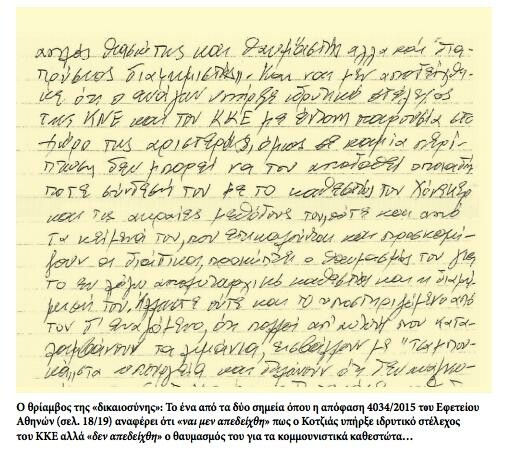 απλός θιασώτης και θαυμαστής αλλά και "δια-
πρύσιος διαφημιστής". Και ναι μεν αποδείχθη-
κε ότι ο ενάγων υπήρξε ιδρυτικό στέλεχος
της ΚΝΕ και του ΚΚΕ με έντονη παρουσία στο
χώρο της αριστεράς, όμως σε καμία περί-
πτωση δεν μπορεί να του αποδοθεί οποιαδή
ποτε σύνδεσή του με το καθεστώς του Χόνεκερ
και τις ακραίες μεθόδους του, ούτε και από
τα κείμενά του, που επικαλούνται και προσκομί-
ζουν οι διάδικοι, προκύπτει ο θαυμασμός του για
το εν λόγω απολυταρχικό καθεστώς και η διαφή-
μισή του. Άλλωστε ούτε και το υποστηριζόμενο από
τον εναγόμενο, ότι πολλοί απ' αυτούς που κατα-
λαμβάνουν τα λιμάνια, εισβάλλουν με "ταμπού-
στα υπουργεία και δηλώνουν ότι δεν
Ο θρίαμβος της «δικαιοσύνης»: Το ένα από τα δύο σημεία όπου η απόφαση 4034/2015 του Εφετείου
Αθηνών (σελ. 18/19) αναφέρει ότι «ναι μεν απεδείχθη» πως ο Κοτζιάς υπήρξε ιδρυτικό στέλεχος
του ΚΚΕ αλλά «δεν απεδείχθη» ο θαυμασμός του για τα κομμουνιστικά καθεστώτα…